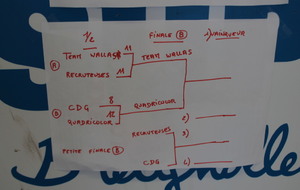 1/2 FINALE B 1) VAINQUEUR
TEAM WALLAS 13 TEAM WALLAS
A
RECRUTEUSES 11
CDG 8 QUADRICOLOR
B
QUADRICOLOR 13
2)
RECRUTEUSES 3)
PETITE FINALE B
CDG 4)